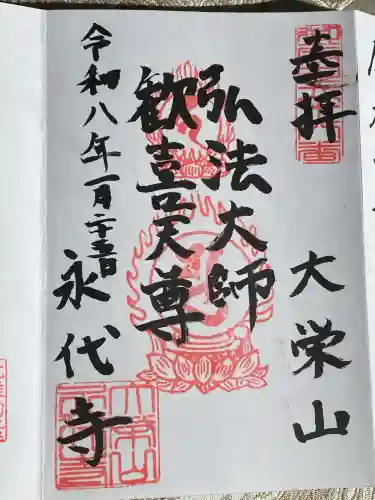 奉拝
大栄山
弘法大師
歓喜天尊
令和八年一月二十五日
永代寺